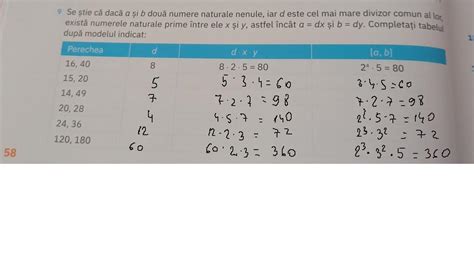 9 Se știe că dacă a și b două numere naturale nenule, iar d este cel mai mare divizor comun al lor,
există numerele naturale prime între ele x și y, astfel încât a = dx și b = dy. Completați tabelul
după modelul indicat:
Perechea d d · x · y [a, b]
16, 40 8 8 · 2 · 5 = 80 2⁴ · 5 = 80
15, 20 5 5 · 3 · 4 = 60 3 · 4 · 5 = 60
14, 49 7 7 · 2 · 7 = 98 7 · 2 · 7 = 98
20, 28 4 4 · 5 · 7 = 140 2² · 5 · 7 = 140
24, 36 12 12 · 2 · 3 = 72 2³ · 3² = 72
120, 180 60 60 · 2 · 3 = 360 2³ · 3² · 5 = 360
58